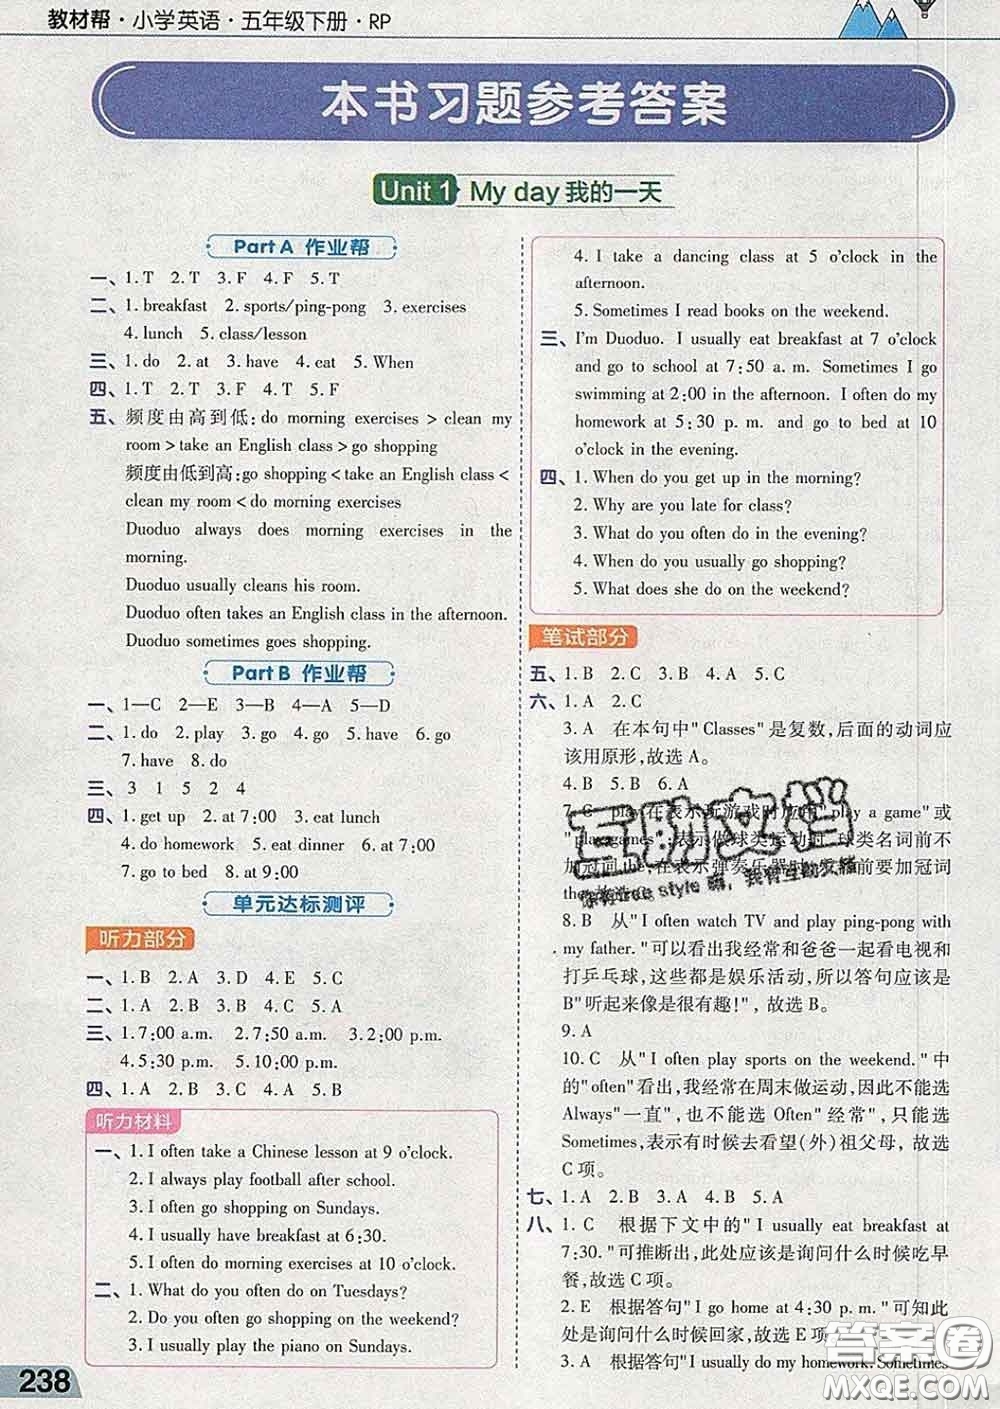 教材帮·小学英语·五年级下册·RP
本书习题参考答案
Unit 1 My day 我的一天
Part A 作业帮
一、1. T 2. T 3. F 4. F 5. T
二、1. breakfast 2. sports/ping-pong 3. exercises
4. lunch 5. class/lesson
三、1. do 2. at 3. have 4. eat 5. When
四、1. T 2. T 3. F 4. T 5. F
五、频度由高到低: do morning exercises > clean my
room > take an English class > go shopping
频度由低到高: go shopping < take an English class <
clean my room < do morning exercises
Duoduo always does morning exercises in the
morning.
Duoduo usually cleans his room.
Duoduo often takes an English class in the afternoon.
Duoduo sometimes goes shopping.
Part B 作业帮
一、1—C 2—E 3—B 4—A 5—D
二、1. do 2. play 3. go 4. do 5. have 6. go
7. have 8. do
三、3 1 5 2 4
四、1. get up 2. at 7:00 3. eat lunch
4. do homework 5. eat dinner 6. at 7:00
7. go to bed 8. at 9:00
单元达标测评
听力部分
一、1. B 2. A 3. D 4. E 5. C
二、1. A 2. B 3. B 4. C 5. A
三、1. 7:00 a.m. 2. 7:50 a.m. 3. 2:00 p.m.
4. 5:30 p.m. 5. 10:00 p.m.
四、1. A 2. B 3. B 4. A 5. B
听力材料
一、1. I often take a Chinese lesson at 9 o'clock.
2. I always play football after school.
3. I often go shopping on Sundays.
4. I usually have breakfast at 6:30.
5. I often do morning exercises at 10 o'clock.
二、1. What do you often do on Tuesdays?
2. Do you often go shopping on the weekend?
3. I usually play the piano on Sundays.
4. I take a dancing class at 5 o'clock in the
afternoon.
5. Sometimes I read books on the weekend.
三、I'm Duoduo. I usually eat breakfast at 7 o'clock
and go to school at 7:50 a. m. Sometimes I go
swimming at 2:00 in the afternoon. I often do my
homework at 5:30 p. m. and go to bed at 10
o'clock in the evening.
四、1. When do you get up in the morning?
2. Why are you late for class?
3. What do you often do in the evening?
4. When do you usually go shopping?
5. What does she do on the weekend?
笔试部分
五、1. B 2. C 3. B 4. A 5. C
六、1. A 2. C
3. A 在本句中"Classes"是复数,后面的动词应
该用原形,故选 A。
4. B 5. B 6. A
7. C play在表示玩游戏时应用"play a game"或
"play games",表示做球类运动时,球类名词前不
加冠词the,在表示弹奏乐器时,要加冠词
the,故选C。
8. B 从"I often watch TV and play ping-pong with
my father."可以看出我经常和爸爸一起看电视和
打乒乓球,这些都是娱乐活动,所以答句应该是
B"听起来像是很有趣!",故选 B。
9. A
10. C 从"I often play sports on the weekend."中
的"often"看出,我经常在周末做运动,因此不能选
Always"一直",也不能选 Often"经常",只能选
Sometimes,表示有时候去看望(外)祖父母,故选
C 项。
七、1. A 2. B 3. A 4. B 5. A
八、1. C 根据下文中的"I usually eat breakfast at
7:30."可推断出,此处应该是询问什么时候吃早
餐,故选 C 项。
2. E 根据答句"I go home at 4:30 p. m."可知此
处是询问什么时候回家,故选 E 项。
3. A 根据答句"I usually do my homework. Sometimes
238
互助文档
答案圈
MXQE.COM